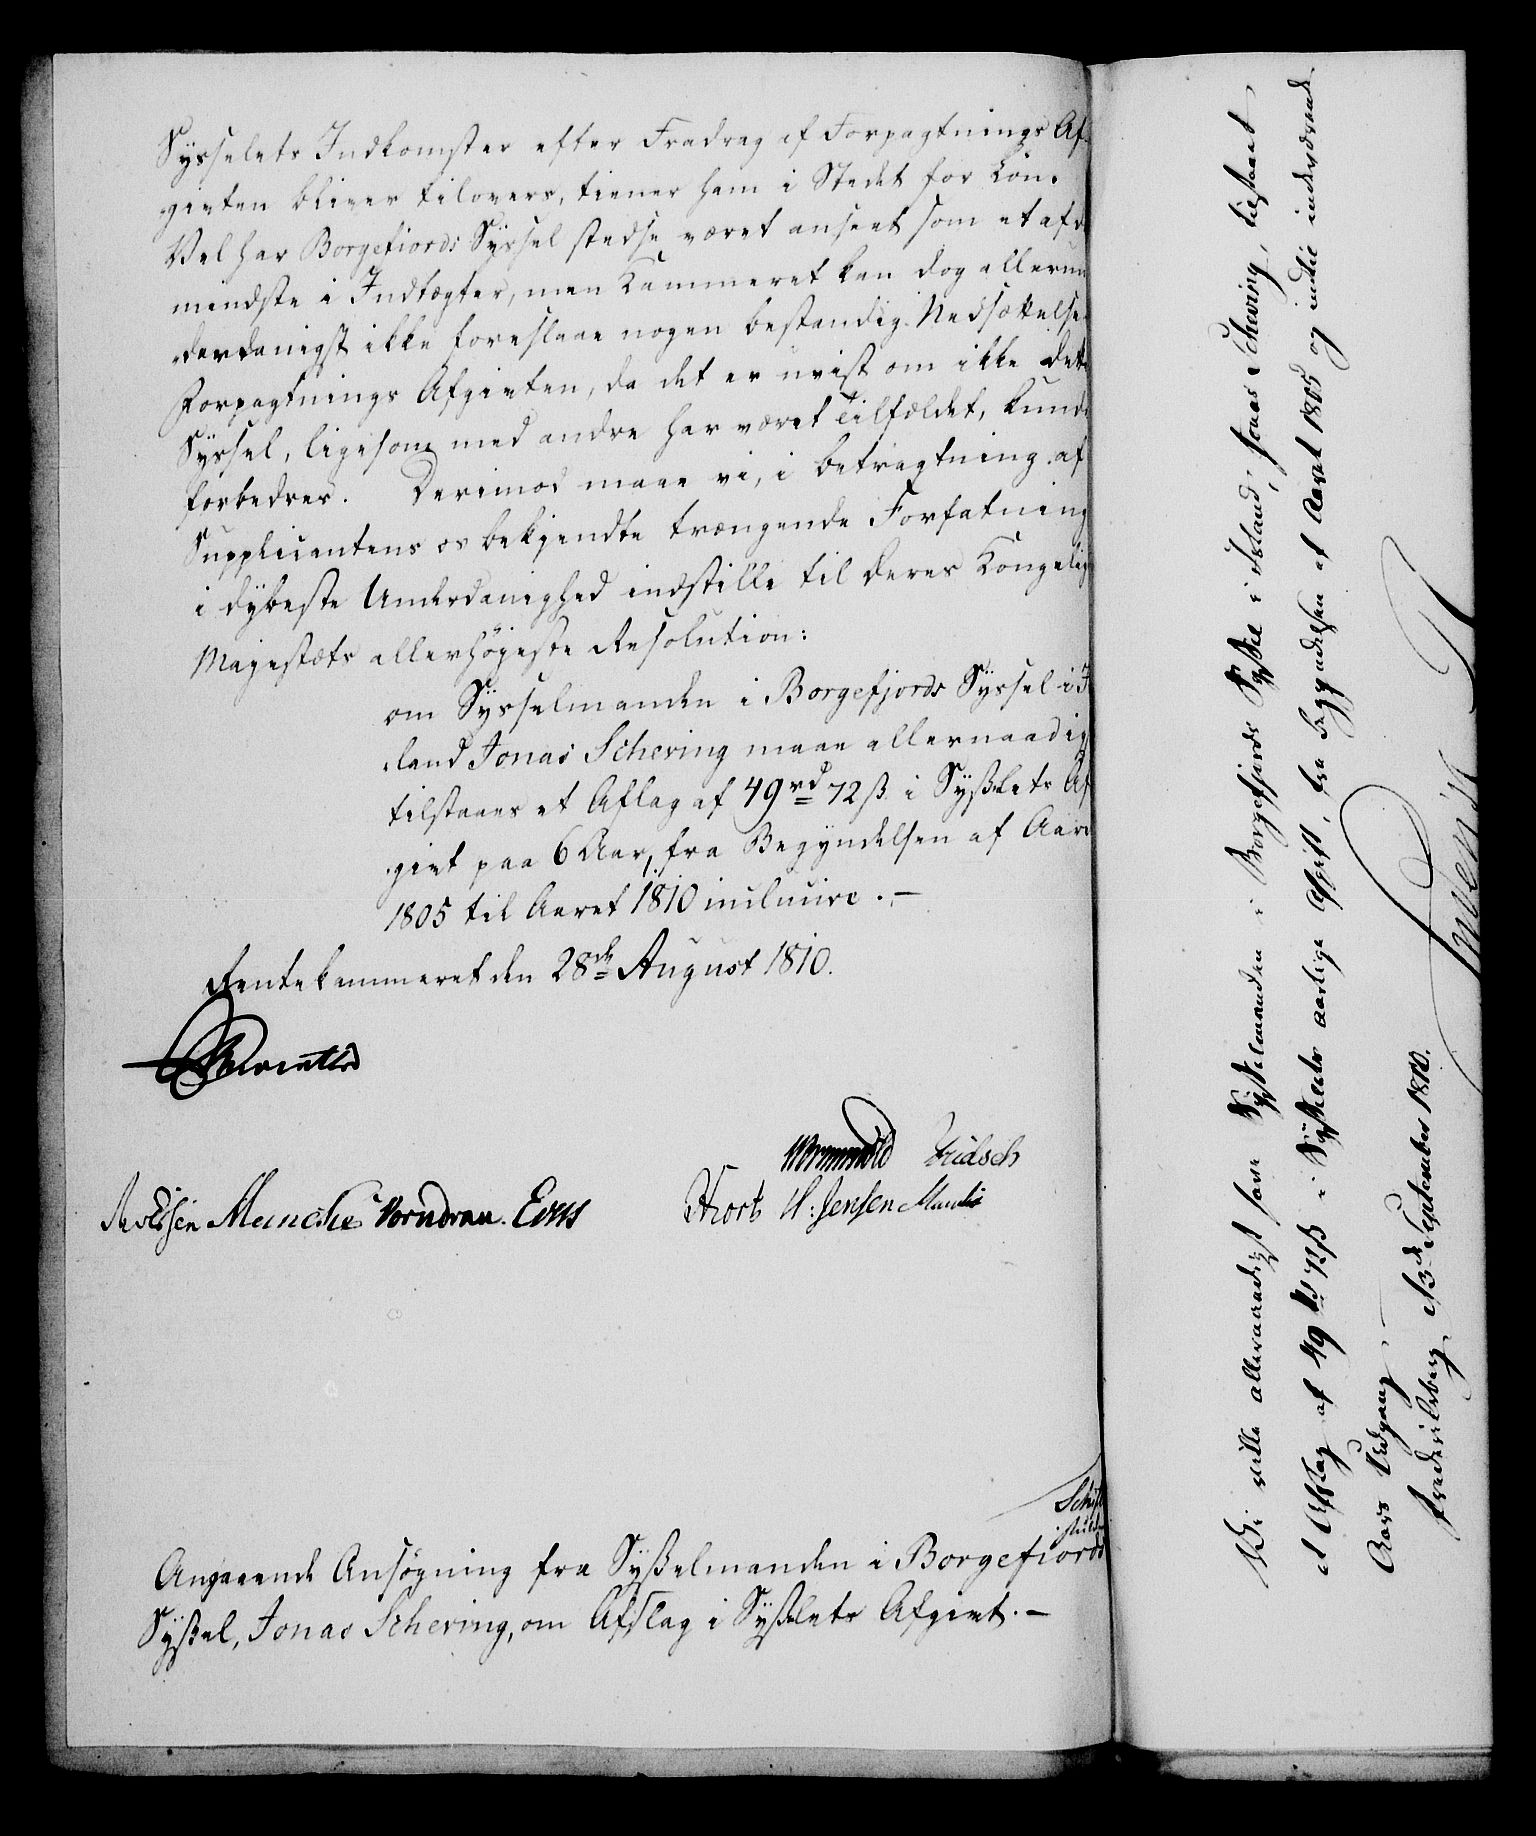 Sysselets Indkomster efter Fradrag af Forpagtnings Af-
giften bliver tilovers, tiener ham i Stedet for Løn.
Vel har Borgefiords Syssel stedse været anseet som et af de
mindste i Indtægter, men Kammeret kan dog allerun-
derdanigst ikke foreslaae nogen bestandig Nedsættelse
Forpagtnings Afgiften, da det er uvist om ikke dette
Syssel, ligesom med andre har været Tilfældet, kunde
forbedres. Derimod maae vi, i betragtning af
Supplicantens os bekjendte trængende Forfatning
i dybeste Underdanighed indstille til Deres Kongelige
Majestæts allerhøjeste Resolution:
om Sysselmanden i Borgefjords Syssel i I
land Jonas Schering maae allernaadig
tilstaaes et Aflag af 49 rd 72 ß i Syßlets Af
gift paa 6 Aar, fra Begyndelsen af Aaret
1805 til Aaret 1810 inclusive. —
Rentekammeret den 28de August 1810.
Wormskiold
Hiort H: Jensen
Munche Vorndran.
Angaaende Ansøgning fra Syßelmanden i Borgefiords
Syßel, Jonas Schering, om Afslag i Syßlets Afgift. —
Vi ville allernaadigst have Sysselmanden i Borgefjords Syssel i Island, Jonas Schering, tilstaaet
et Afslag af 49 rd 72 ß i Syßelets aarlige Afgift, fra Begyndelsen af Aaret 1805 og indtil indeværende
Aars Udgang. —
Frederiksberg, d 3de September 1810.
Frederik R